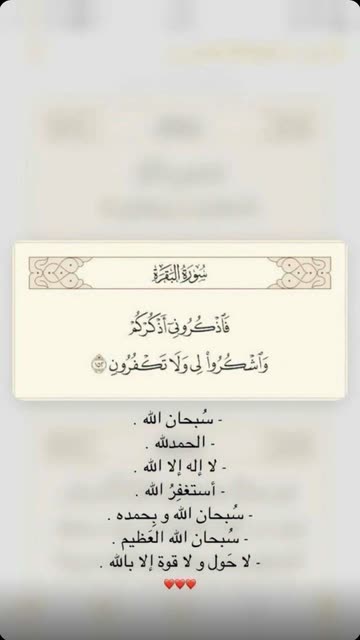 سُورَةُ البَقَرَةِ
فَٱذْكُرُونِىٓ أَذْكُرْكُمْ
وَٱشْكُرُوا۟ لِى وَلَا تَكْفُرُونِ ١٥٢
- سُبحان الله .
- الحمدلله .
- لا إله إلا الله .
- أستغفِرُ الله .
- سُبحان الله و بِحمده .
- سُبحان الله العَظيم .
- لا حَول و لا قوة إلا بالله .
❤️❤️❤️